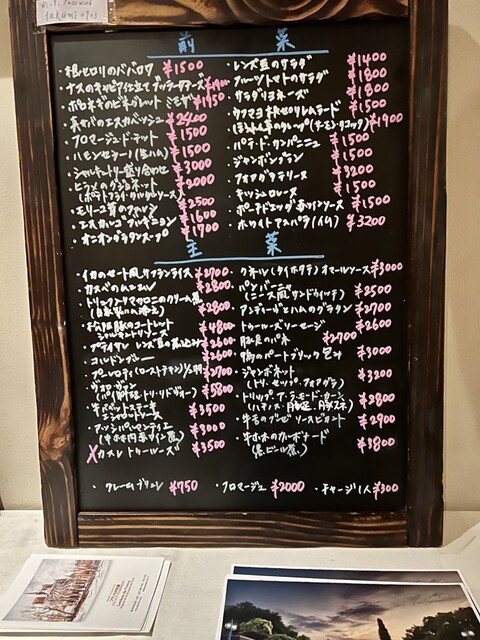 前菜
・根セロリのババロワ ¥1500
・ナスのキャビア仕立て ブッラータチーズ ¥1900
・ポロネギのビネグレット ミモザ ¥1950
・真サバのエスカベッシュ ¥2400
・フロマージュ・ド・テット ¥1500
・ハモンセラーノ(生ハム) ¥1500
・シャルキュトリー盛り合わせ ¥3000
¥2000
・モリーユ茸の ¥2500
・エスカルゴ ブルギニョン ¥1600
・オニオングラタンスープ ¥1700
・レンズ豆のサラダ ¥1400
・フルーツトマトのサラダ ¥1800
・サラダリヨネーズ ¥1800
・ウフマヨ 根セロリレムラード ¥1500
(サーモン・リコッタ) ¥1900
・パテ・ド・カンパーニュ ¥1500
・ジャンボンブラン ¥1500
・フォアグラテリーヌ ¥3200
・キッシュロレーヌ ¥1500
・ポーチドエッグ 赤ワインソース ¥1500
・ホワイトアスパラ ¥3200
主菜
・イカのセート風 サフランライス ¥2700
・カスベのムニエル ¥2800
・トリュフとマカロニのクリーム煮 ¥2800
(自家製ハム添え)
豚のコートレット ¥4800
シャルキュティエールソース
レンズ豆の煮込み ¥2600
・コルドンブルー ¥2600
・プーレロティ(ローストチキン) 1/2羽 ¥2700
・ヴォロヴァン ¥5800
・牛バベットステーキ ¥3500
エシャロットソース
¥3000
(牛ほほ肉赤ワイン煮)
X カスレ トゥールーズ ¥3500
・クネル(タイ・ホタテ) オマールソース ¥3000
・パンバーニャ ¥2500
(ニース風サンドウィッチ)
・アンディーブとハムのグラタン ¥2700
・トゥールーズソーセージ ¥2600
・豚足のパネ ¥2700
・鴨のパートブリック包み ¥3000
・ジャンボネット ¥3200
(トリ・セップ・フォアグラ)
・トリップ・ア・ラ・モード・カーン ¥2800
(ハチノス・豚足
・牛舌のブレゼ ソースピカント ¥2900
カルボナード ¥3800
(黒ビール煮)
・クレームブリュレ ¥750 ・フロマージュ ¥2000 ・チャージ1人 ¥300